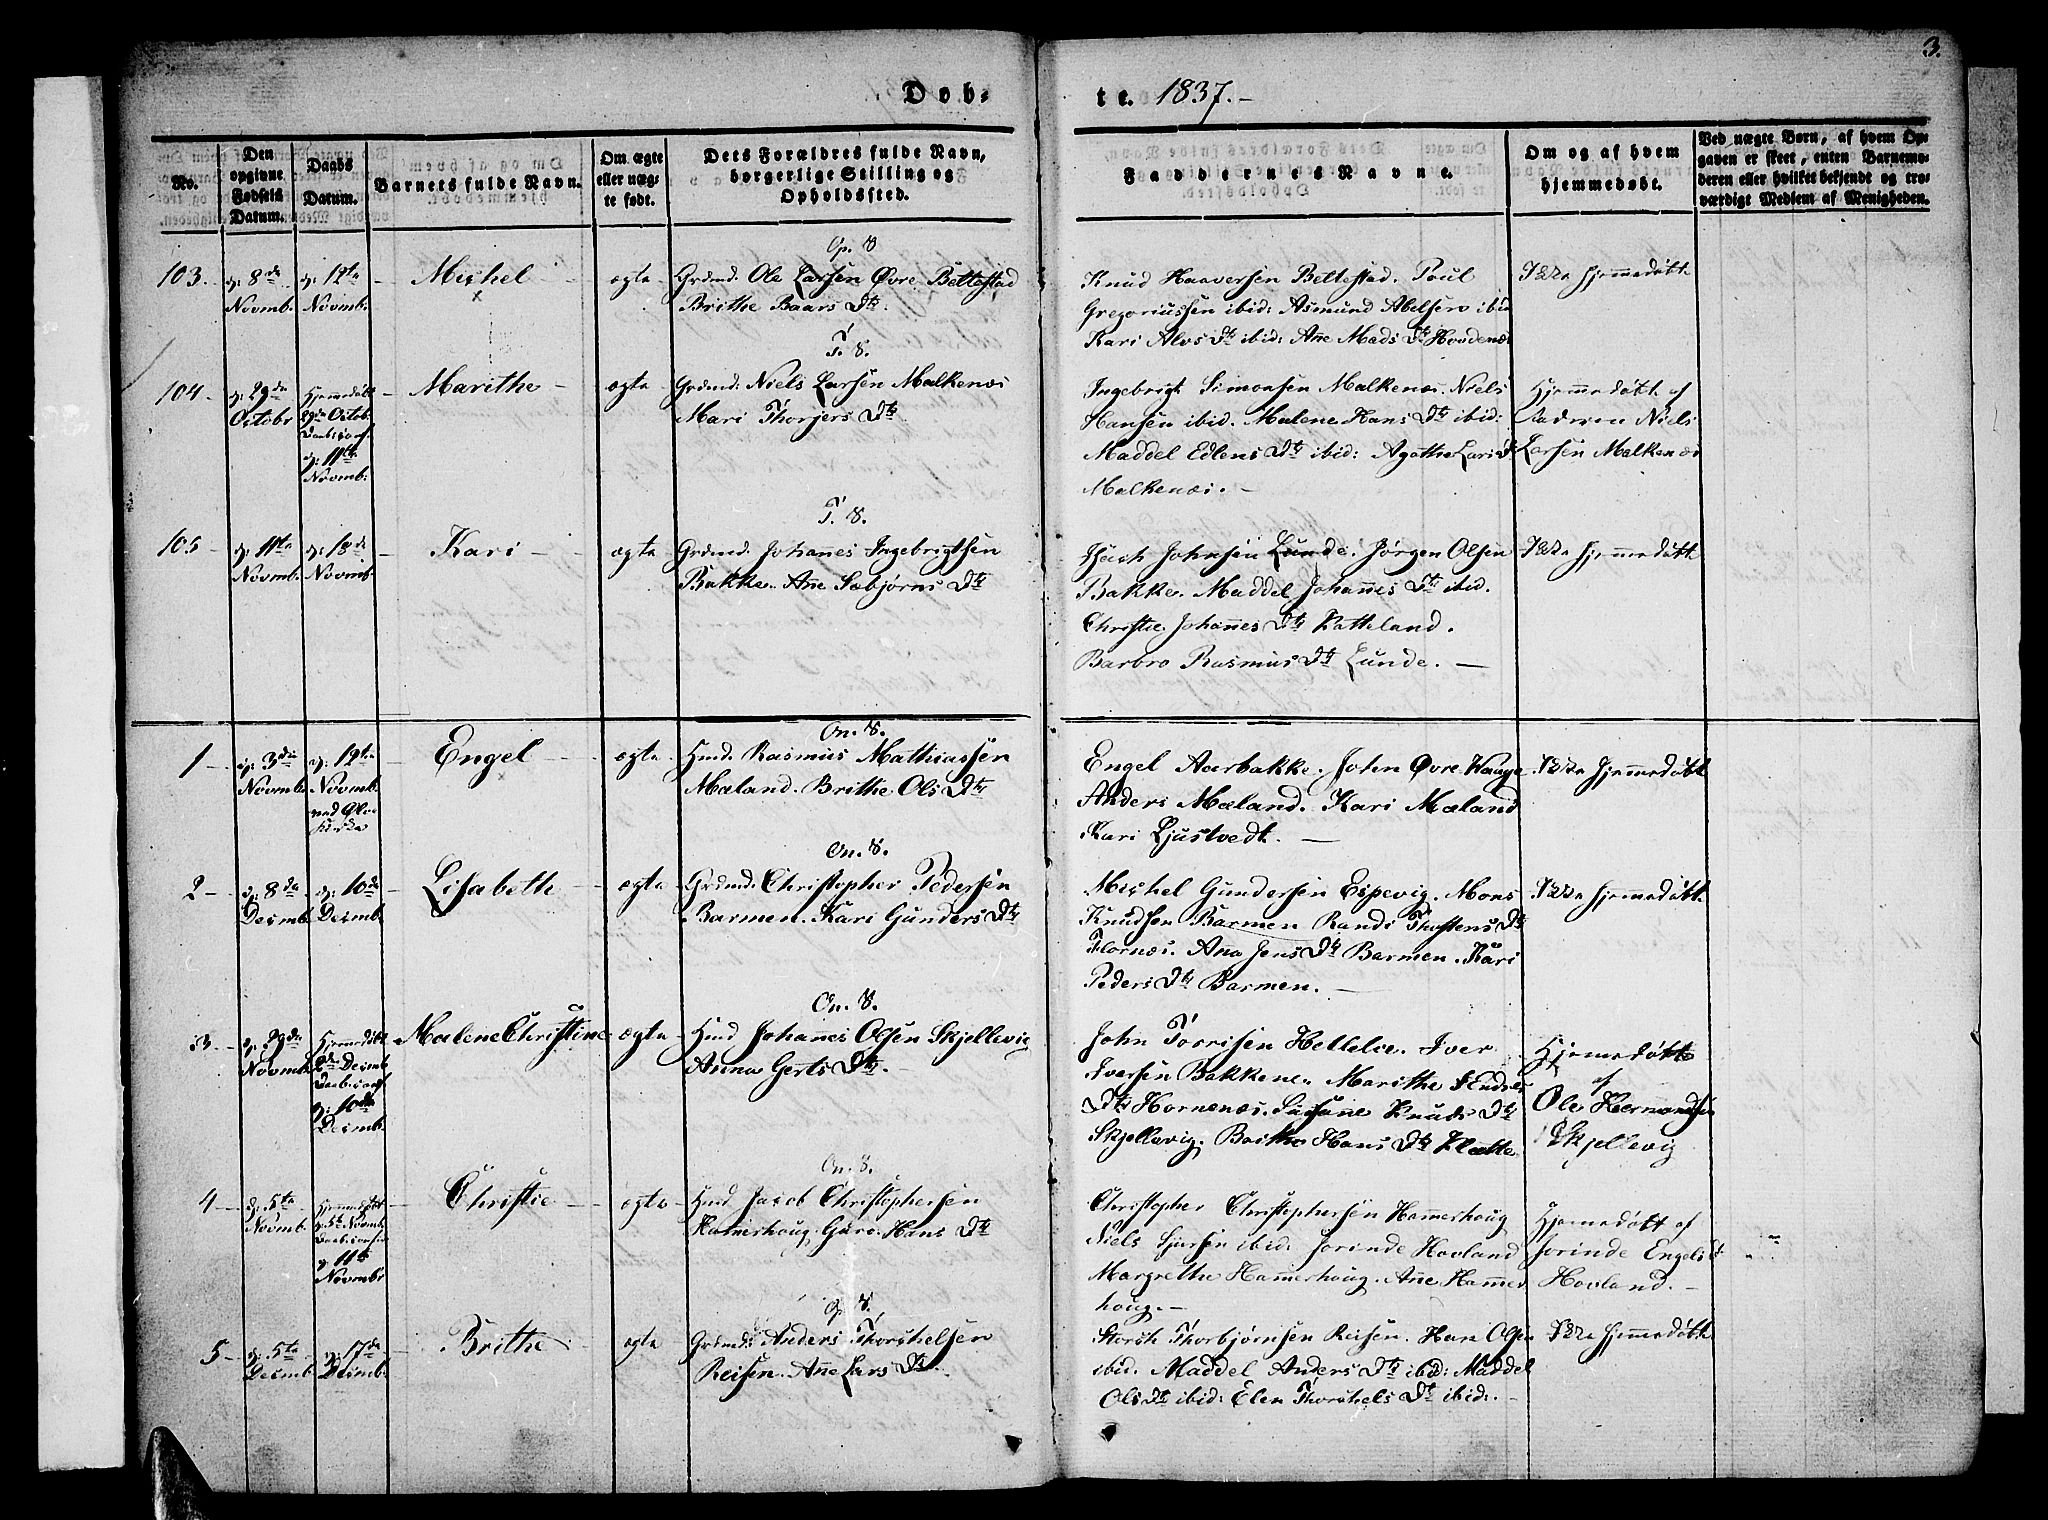 3.
Døb-
te. 1837.-
No.
Den opgivne Fødsels Datum.
Daabs Datum.
Barnets fulde Navn.
Om ægte eller uægte født.
Dets Forældres fulde Navn, borgerlige Stilling og Opholdssted.
Faddernes Navne.
Om og af hvem hjemmedøbt.
Ved uægte Børn, af hvem Opgaven er skeet, enten Barnemoderen eller hvilket bekjendt og troværdigt Medlem af Menigheden.
103. d: 8de Novmb. d: 12te Novmb: Michel ægte
Grdmd. Ole Larsen Øvre Bettestad
Brithe Baars Dtr
Knud Haaversen Bettestad. Poul
Gregoriussen ibid: Asmund Abelsero ibid
Kari Alvs Dtr ibid: Ane Mads Dtr Hovdenæs
Ikke hjemmedøbt
T. S.
104 d: 29de Octobr Hjemmedøbt 29de Octob. d: 11te Novmb: Marithe ægte
Grdmd: Niels Larsen Malkenæs
Mari Thorjers Dtr
Ingebrigt Simonsen Malkenæs. Niels
Hansen ibid. Malene Hans Dtr ibid:
Maddel Edlens Dtr ibid: Agathe Lars D
Malkenæs. -
Hjemmedøbt af
Faderen Niels
Larsen Malkenæs
T. S.
105 d: 11te Novmb: d: 18de Novmb. Kari ægte
Grdmd. Johanes Ingebrigtsen
Bakke. Ane Sæbjørns Dtr
Isach Johnsen Lunde. Jørgen Olsen
Bakke. Maddel Johannes Dtr ibid.
Christie Johannes Dtr Ratteland.
Barbro Rasmus Dtr Lunde. -
Ikke hjemmedøbt
On. S.
1 d: 3die Novmb d: 12te Novmb. ved Ølve Kirke Engel ægte
Hmd. Rasmus Mathiassen
Mæland. Brithe Ols Dtr
Engel Aarbakke. John Øvre Hauge
Anders Mæland. Kari Mæland
Kari Ljustvedt. -
Ikke hjemmedøbt
On. S.
2 d: 8de Decmb. d: 10de Decmb. Lisabeth ægte
Grdmd. Christopher Pedersen
Barmen. Kari Gunders Dtr
Michel Gundersen Espevig. Mons
Knudsen Barmen Randi Thostens Dtr
Flornæs. Ana Jens Dtr Barmen. Kari
Peders Dtr Barmen. -
Ikke hjemmedøbt
On. S.
3 d: 29de Novmb. Hjemmedøbt Decmb d: 10de Decmb. Malene Christine ægte
Hmd Johannes Olsen Skjellevig
Anna Gerts Dtr. -
John Torrisen Helleloe. Iver
Iversen Bakkene. Marithe Endres
Dtr Hornenæs. Susane Knuds Dtr
Skjellevig. Brithe Hans Dtr Flatte
Hjemmedøbt
af
Ole Hermandsen
Skjellevig
On. S.
4 d: 5te Novmb. Hjemmedøbt d: 5te Novmb. d: 11te Novmbr Christie ægte
Hmd Jacob Christophersen
Hamerhoug. Guro Hans Dtr
Christopher Christophersen Hammerhoug
Niels Sjursen ibid: Jorinde Hovland
Margrethe Hammerhoug. Ane Hammer
houg. -
Hjemmedøbt af
Jorinde Engels D
Hovland. -
5 d: 5te Decmb. d: 17de Decmb. Brithe ægte
Grdmd: Anders Thorchelsen
Reisen. Ane Lars Dtr.
Storch Thorbjørnsen Reisen. Hans Olsen
ibid. Maddel Anders Dtr ibid: Maddel
Ols Dtr ibid: Elen Thorchels Dtr ibid: -
Ikke hjemmedøbt